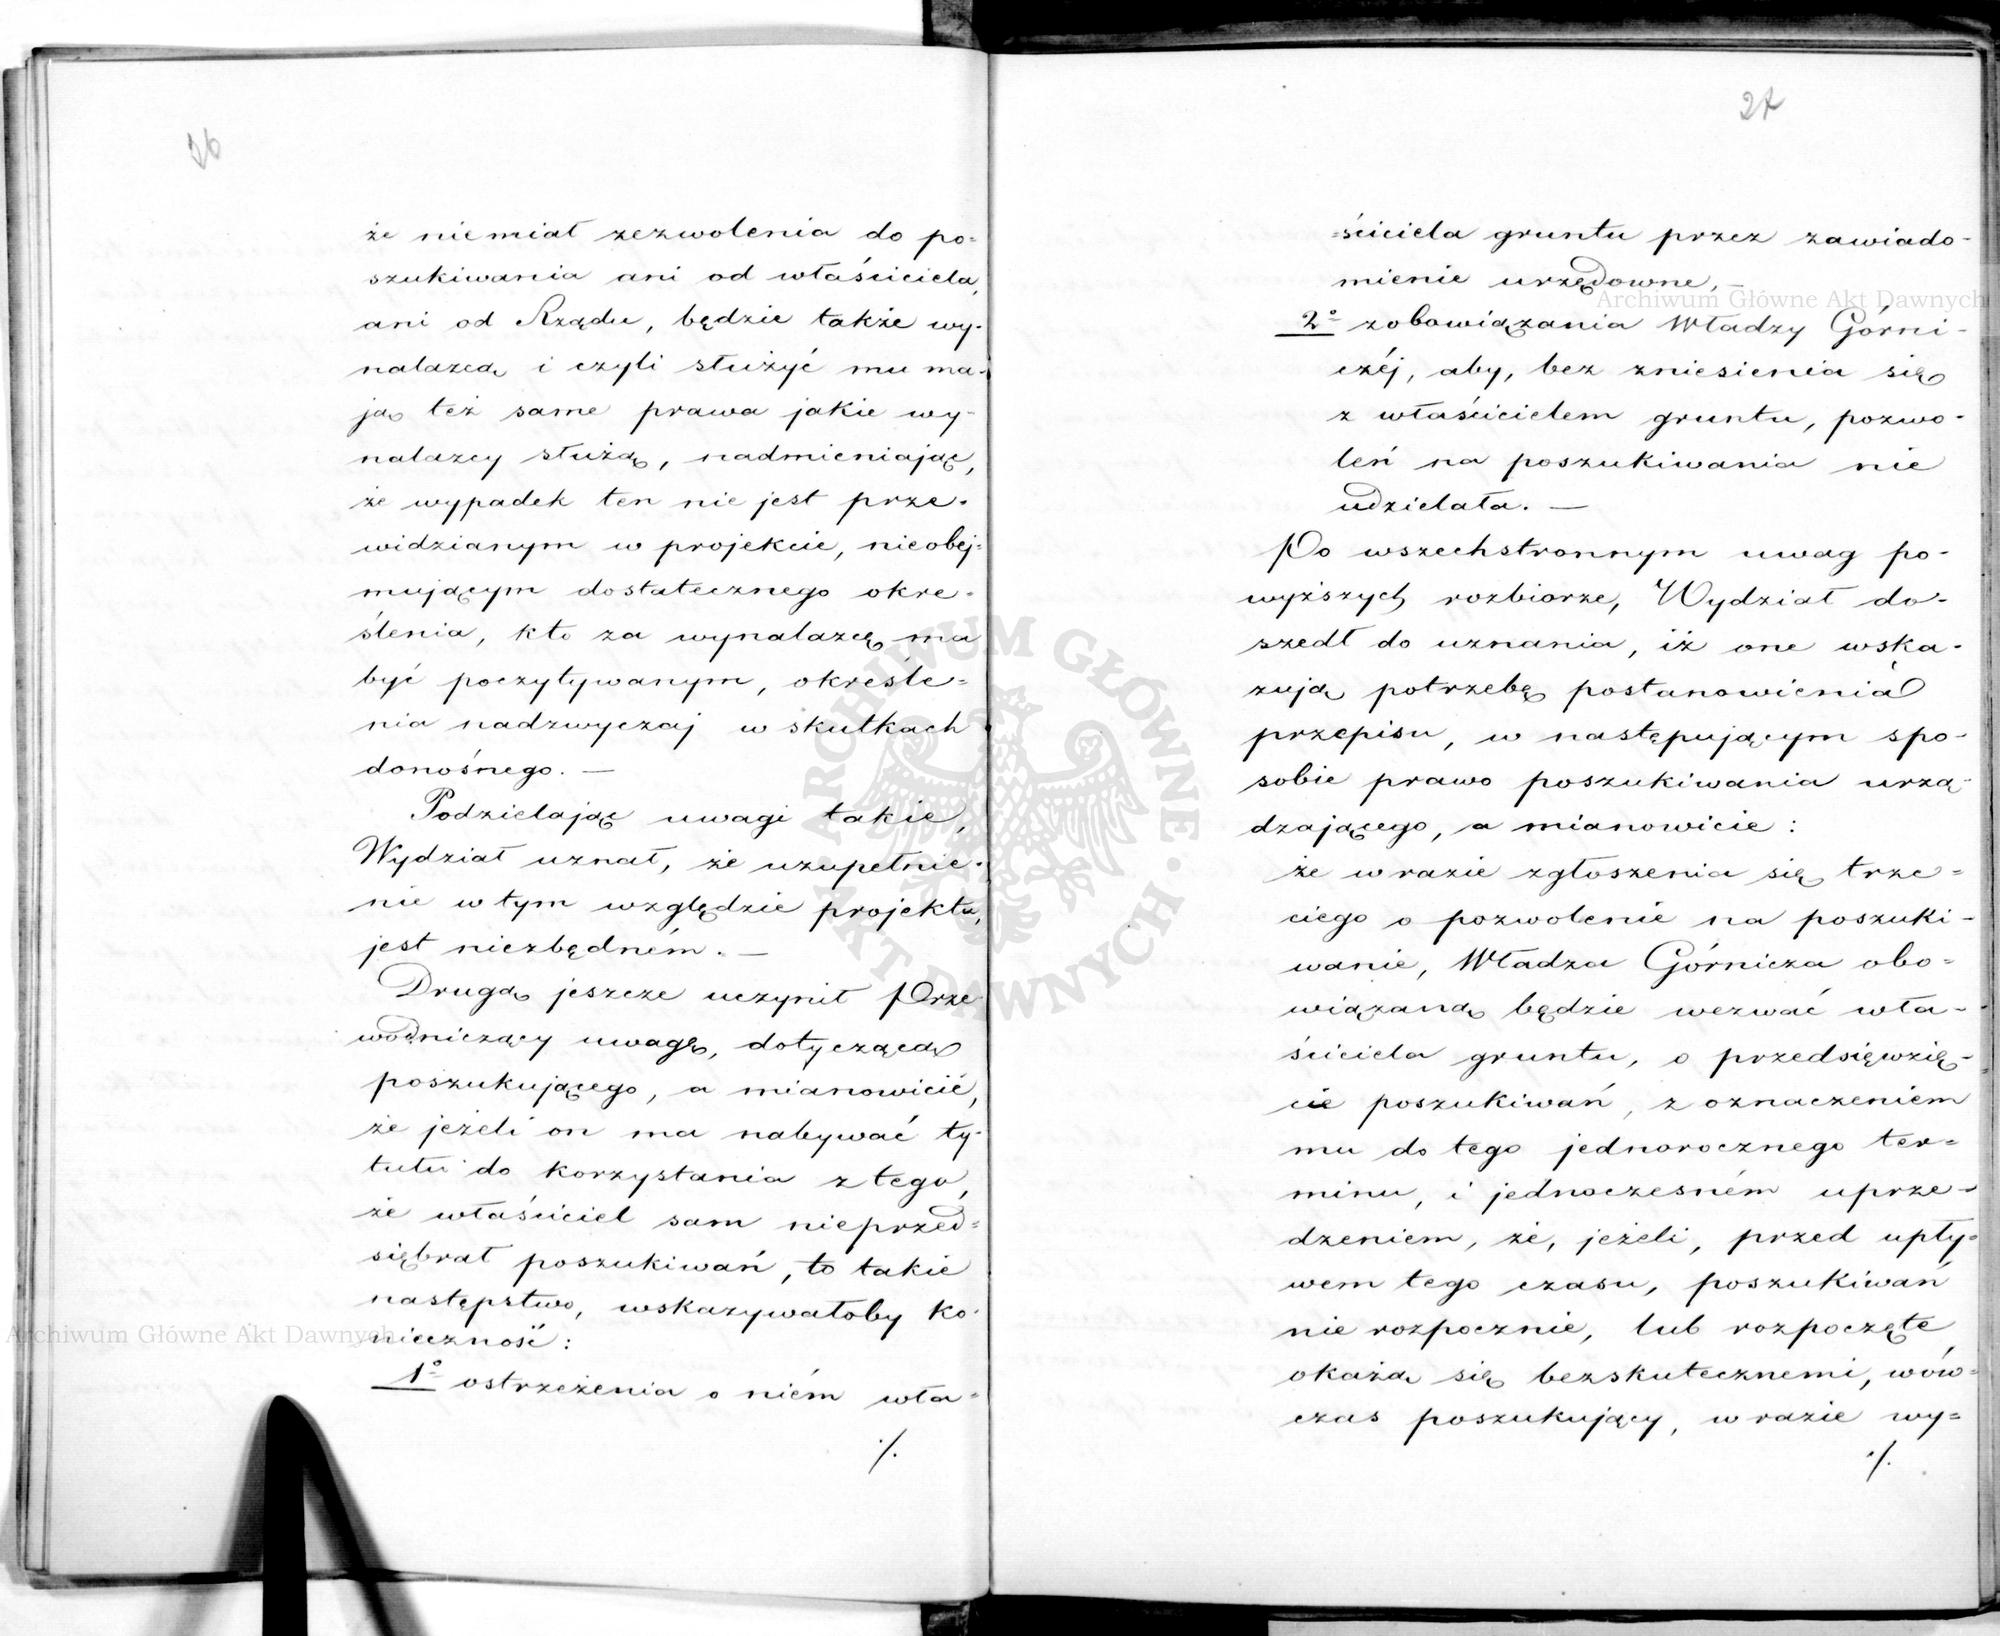 26
że niemiał zezwolenia do po-
szukiwania ani od właściciela,
ani od Rządu, będzie także wy-
nalazcą i czyli służyć mu ma-
ją też same prawa jakie wy-
nalazcy służą, nadmieniając,
że wypadek ten nie jest prze-
widzianym w projekcie, nieobej-
mującym dostatecznego okre-
ślenia, kto za wynalazcę ma
być poczytywanym, określe-
nia nadzwyczaj w skutkach
donośnego. —
Podzielając uwagi takie,
Wydział uznał, że uzupełnie-
nie w tym względzie projektu,
jest niezbędném. —
Drugą jeszcze uczynił Prze-
wodniczący uwagę, dotyczącą
poszukującego, a mianowicie,
że jeżeli on ma nabywać ty-
tułu do korzystania z tego,
że właściciel sam nieprzed-
siębrał poszukiwań, to takie
następstwo, wskazywałoby ko-
nieczność:
1° ostrzeżenia o niém wła-
./.
27
-ściciela gruntu przez zawiado-
mienie urzędowne, —
2° zobowiązania Władzy Górni-
czéj, aby, bez zniesienia się
z właścicielem gruntu, pozwo-
leń na poszukiwania nie
udzielała. —
Po wszechstronnym uwag po-
wyższych rozbiorze, Wydział do-
szedł do uznania, iż one wska-
zują potrzebę postanowienia
przepisu, w następującym spo-
sobie prawo poszukiwania urzą-
dzającego, a mianowicie:
że w razie zgłoszenia się trze-
ciego o pozwolenie na poszuki-
wanie, Władza Górnicza obo-
wiązaną będzie wezwać wła-
ściciela gruntu, o przedsięwzię-
cie poszukiwań, z oznaczeniem
mu do tego jednorocznego ter-
minu, i jednoczesném uprze-
dzeniem, że, jeżeli, przed upły-
wem tego czasu, poszukiwań
nie rozpocznie, lub rozpoczęte
okażą się bezskutecznemi, wów-
czas poszukujący, w razie wy-
./.
Archiwum Główne Akt Dawnych
Archiwum Główne Akt Dawnych
ARCHIWUM GŁÓWNE AKT DAWNYCH